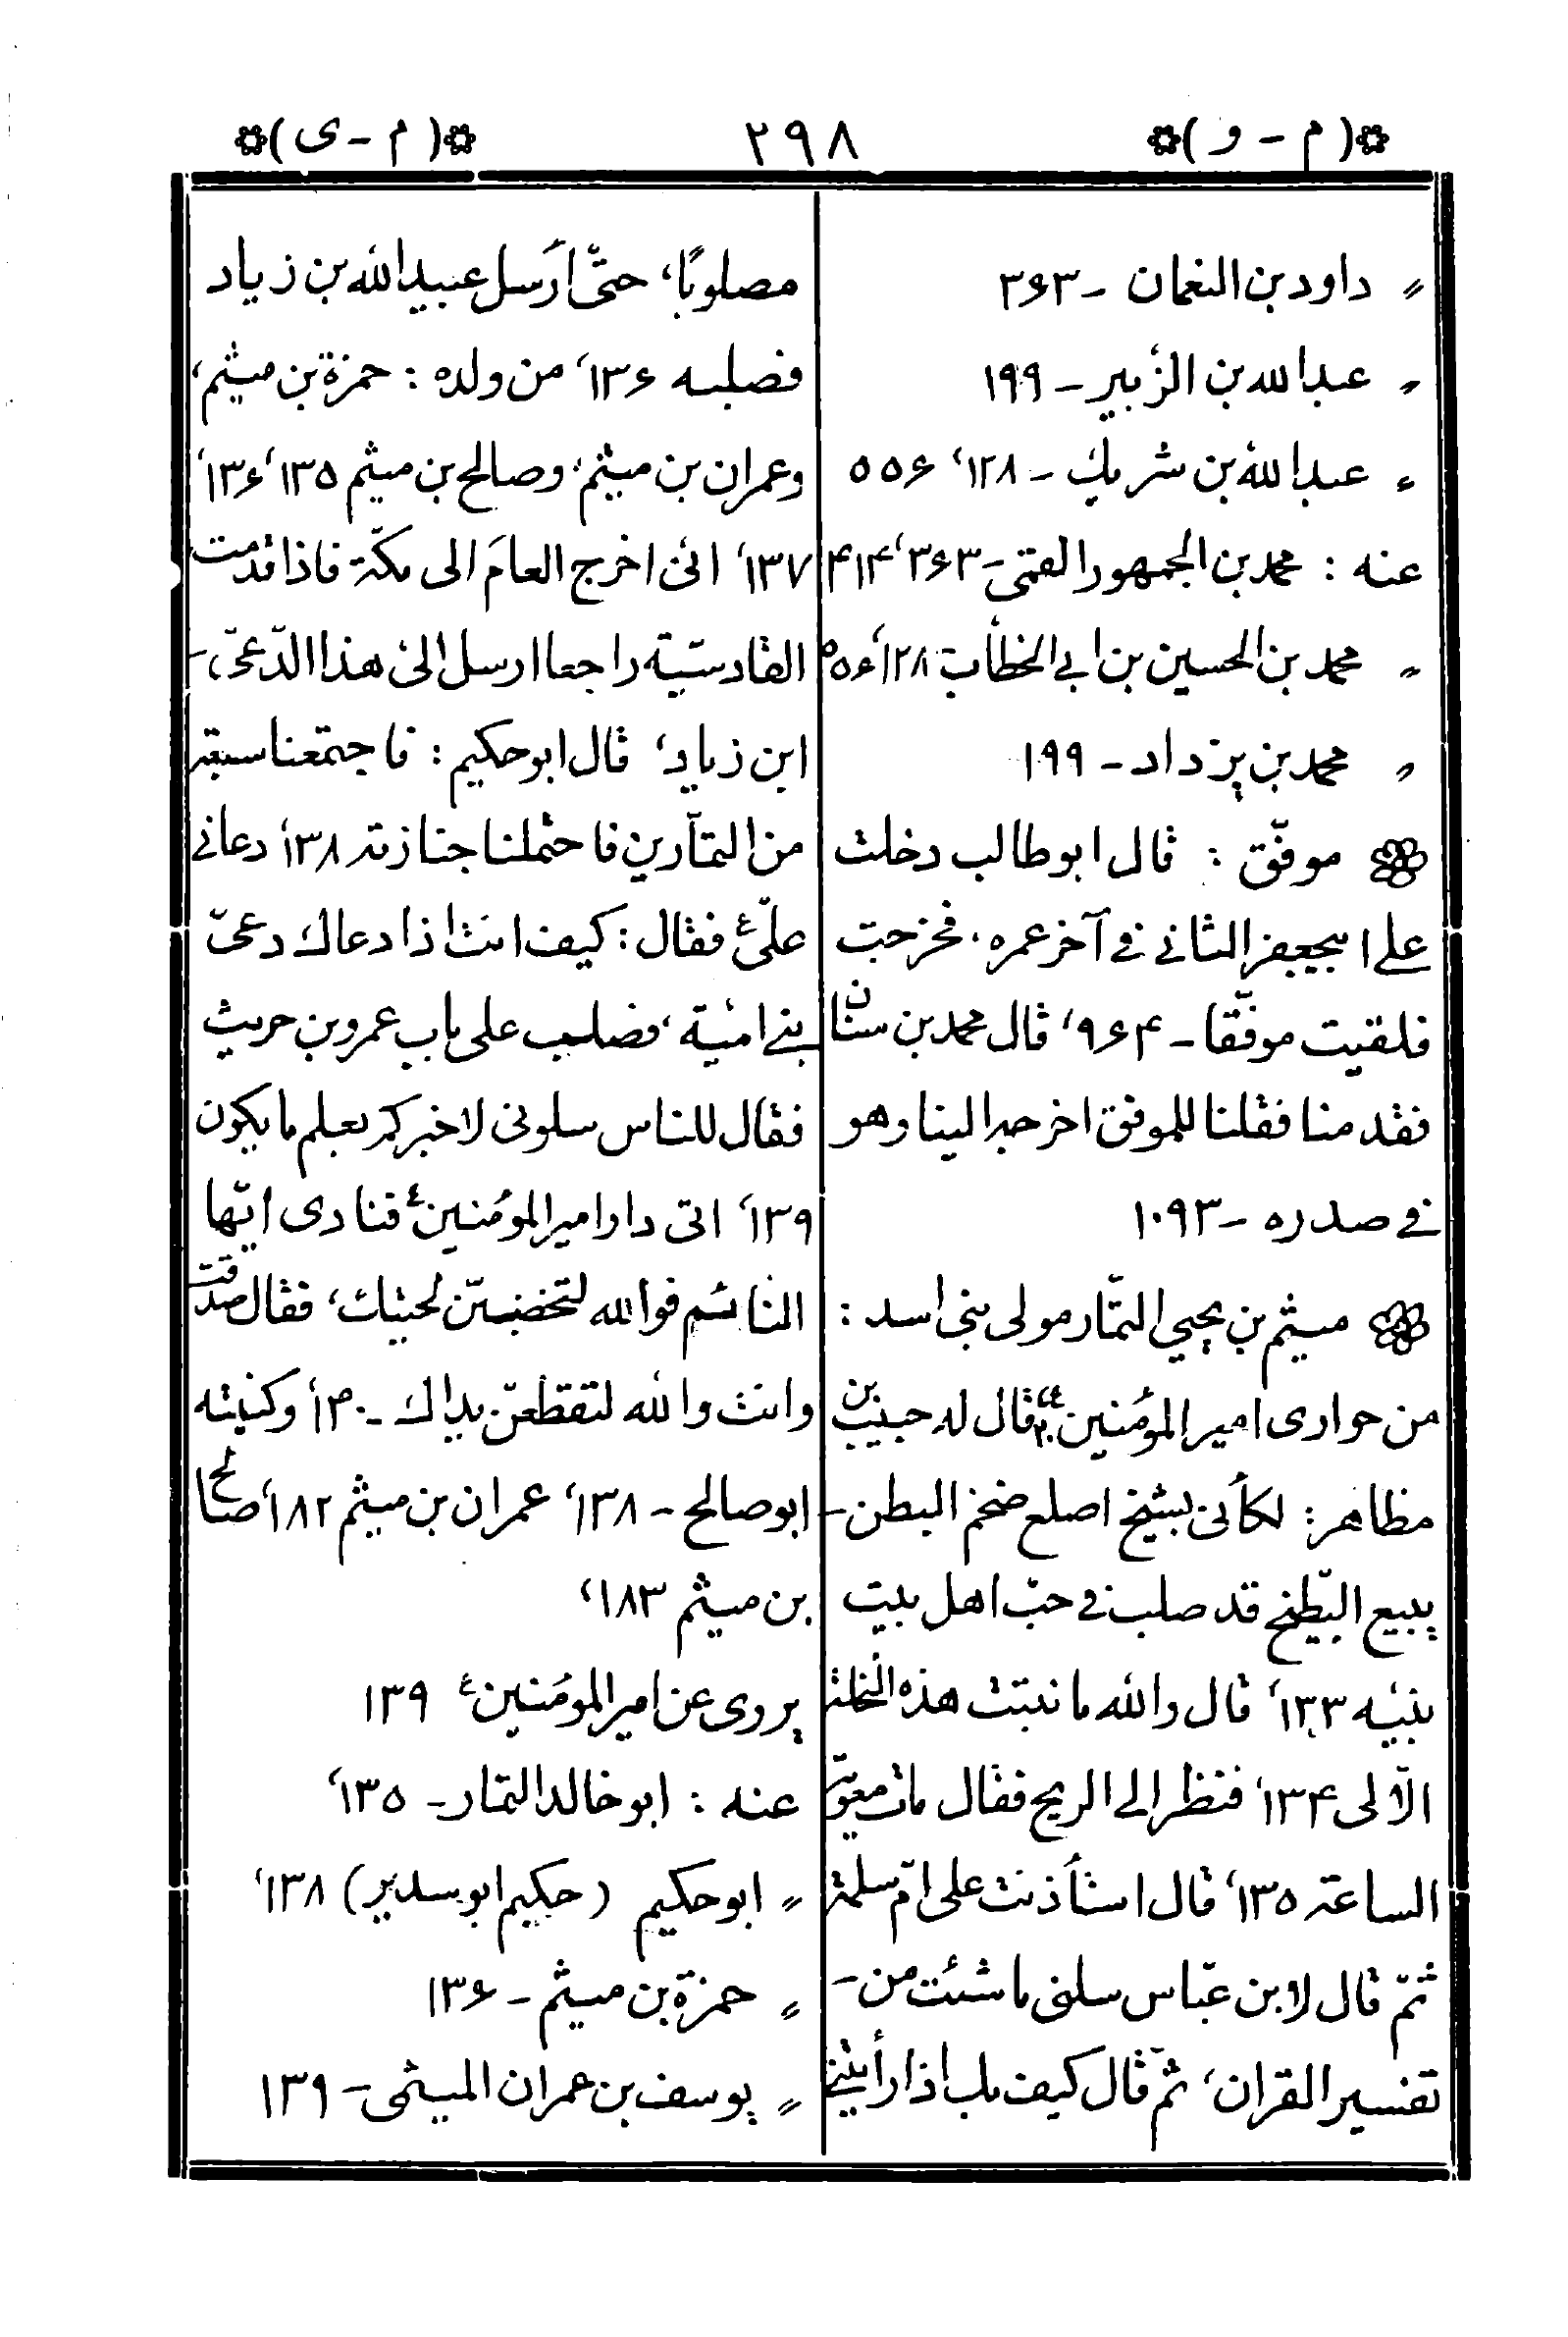 (م - و) ۲۹۸ (م - ی)
〃 داود بن النعمان - ۳۶۳
〃 عبدالله بن الزبیر - ۱۹۹
〃 عبدالله بن شریك - ۱۲۸، ۵۵۶
عنه : محمد بن الجمهور القمی - ۳۶۳، ۴۱۴
〃 محمد بن الحسین بن ابی الخطاب ۱۲۸، ۵۵۶
〃 محمد بن یزداد - ۱۹۹
موفّق : قال ابوطالب دخلت
علی ابیجعفر الثانی فی آخر عمره، فخرجت
فلقیت موفّقا - ۹۶۴، قال محمد بن سنان
فقدمنا فقلنا للموفق اخرجه الینا وهو
فی صدره - ۱۰۹۳
میثم بن یحیی التمّار مولی بنی اسد :
من حواری امیر المؤمنین ع ۲۰، قال له حبیب بن
مظاهر : لكأنی بشیخ اصلع ضخم البطن -
یبیع البطّیخ قد صلب فی حبّ اهل بیت
نبیّه ۱۳۳، قال والله ما نبتت هذه النخلة
الّا لی ۱۳۴، فنظر الی الریح فقال مات معویة
الساعة ۱۳۵، قال استأذنت علی امّ سلمة
ثمّ قال لابن عبّاس سلنی ما شئت من -
تفسیر القران، ثمّ قال كیف بك اذا رأیتنی
مصلوبًا، حتّی ارسل عبیدالله بن زیاد
فصلبه ۱۳۶، من ولده : حمزة بن میثم،
وعمران بن میثم، وصالح بن میثم ۱۳۵، ۱۳۶،
۱۳۷، انی اخرج العام الی مكّة فاذا قدمت
القادسیّة راجعا ارسل الیّ هذا الدّعیّ -
ابن زیاد، قال ابوحكیم : فاجتمعنا سبعة
من التمّارین فاحتملنا جنازته ۱۳۸، دعانی
علیّ ع فقال : كیف انت اذا دعاك دعیّ
بنی امیّة، فصلب علی باب عمرو بن حریث
فقال للناس سلونی لاخبركم بعلم ما یكون
۱۳۹، اتی دار امیر المؤمنین ع فنادی ایّها
النائم فوالله لتخضبنّ لحیتك، فقال صدقت
وانت والله لتقطعنّ یداك - ۱۴۰، وكنیته
ابوصالح - ۱۳۸، عمران بن میثم ۱۸۲، صالح
بن میثم ۱۸۳،
یروی عن امیر المؤمنین ع ۱۳۹
عنه : ابوخالد التمار - ۱۳۵،
〃 ابوحكیم (حكیم ابوسدیر) ۱۳۸،
〃 حمزة بن میثم - ۱۳۶
〃 یوسف بن عمران المیثمی - ۱۳۹